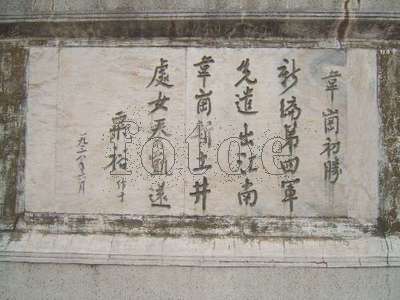 韋崗初勝
新編第四軍
先遣出江南
韋崗斬土井
處女奏凱還
粟裕 作于
一九三八年六月